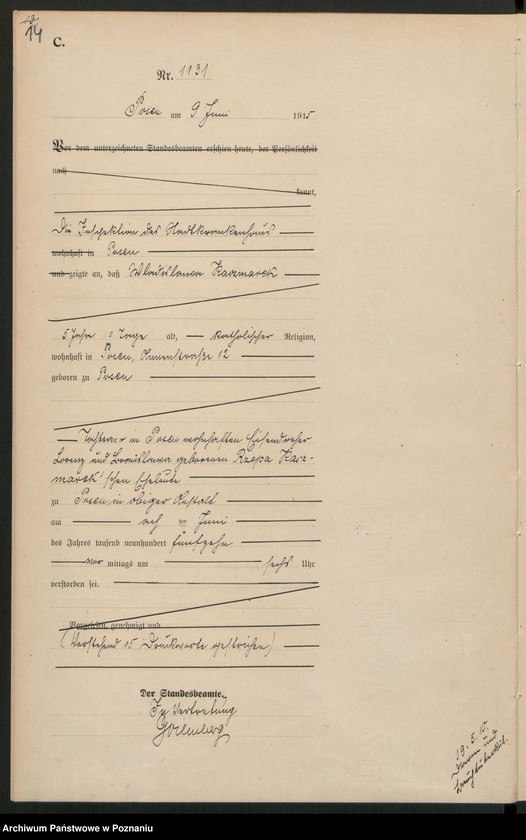 14
C.
Nr. 1131
Posen am 9 Juni 1915
Vor dem unterzeichneten Standesbeamten erschien heute, der Persönlichkeit
nach
kannt,
Die Inspektion des Stadtkrankenhaus
wohnhaft in Posen
und zeigte an, daß Wladislawa Kaczmarek
5 Jahre Tage alt, katholischer Religion,
wohnhaft in Posen, 12
geboren zu Posen
Tochter in Posen wohnhaften Eisendreher
Lorenz und geborenen Rzepa Kacz-
marek'schen Eheleute
zu Posen in obiger Anstalt
am acht ten Juni
des Jahres tausend neunhundert fünfzehn
vor mittags um sechs Uhr
verstorben sei.
Vorgelesen, genehmigt und
(Vorstehend 15 Druckworte gestrichen)
Der Standesbeamte.
In Vertretung
19. 5. 10.
und
Archiwum Państwowe w Poznaniu